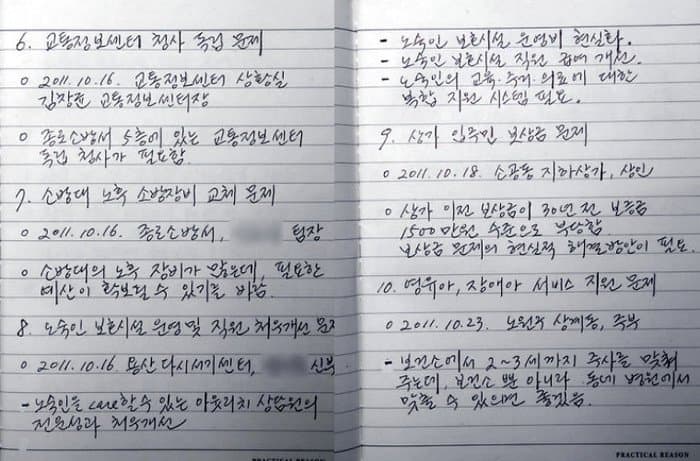 6. 교통정보센터 청사 독립 문제
o 2011.10.16. 교통정보센터 상황실
김장훈 교통정보센터장
o 종로소방서 5층에 있는 교통정보센터
독립 청사가 필요함.
7. 소방대 노후 소방장비 교체 문제
o 2011.10.16. 종로소방서, 팀장
o 소방대의 노후 장비가 많은데, 필요한
예산이 확보될 수 있기를 바람.
8. 노숙인 보호시설 운영 및 직원 처우개선 문제
o 2011.10.16 용산 다시서기센터, 신부
- 노숙인을 care할 수 있는 아웃리치 상담원의
전문성과 처우개선
PRACTICAL REASON
- 노숙인 보호시설 운영비 현실화.
- 노숙인 보호시설 직원 급여 개선.
- 노숙인의 교육·주거·의료에 대한
복합 지원 시스템 필요.
9. 상가 입주민 보상금 문제
o 2011.10.18. 소공동 지하상가, 상인
o 상가 이전 보상금이 30년 전 보증금
1500만원 수준으로 부당함.
보상금 문제의 현실적 해결방안이 필요.
10. 영유아, 장애아 서비스 지원 문제
o 2011.10.23. 노원구 상계동, 주부
- 보건소에서 2~3세까지 주사를 맞춰
주는데, 보건소 뿐 아니라 동네 병원에서
맞출 수 있으면 좋겠음.
PRACTICAL REASON